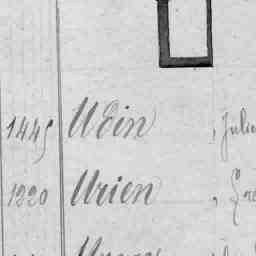 1445 Udin , Julie
1220 Urien ,